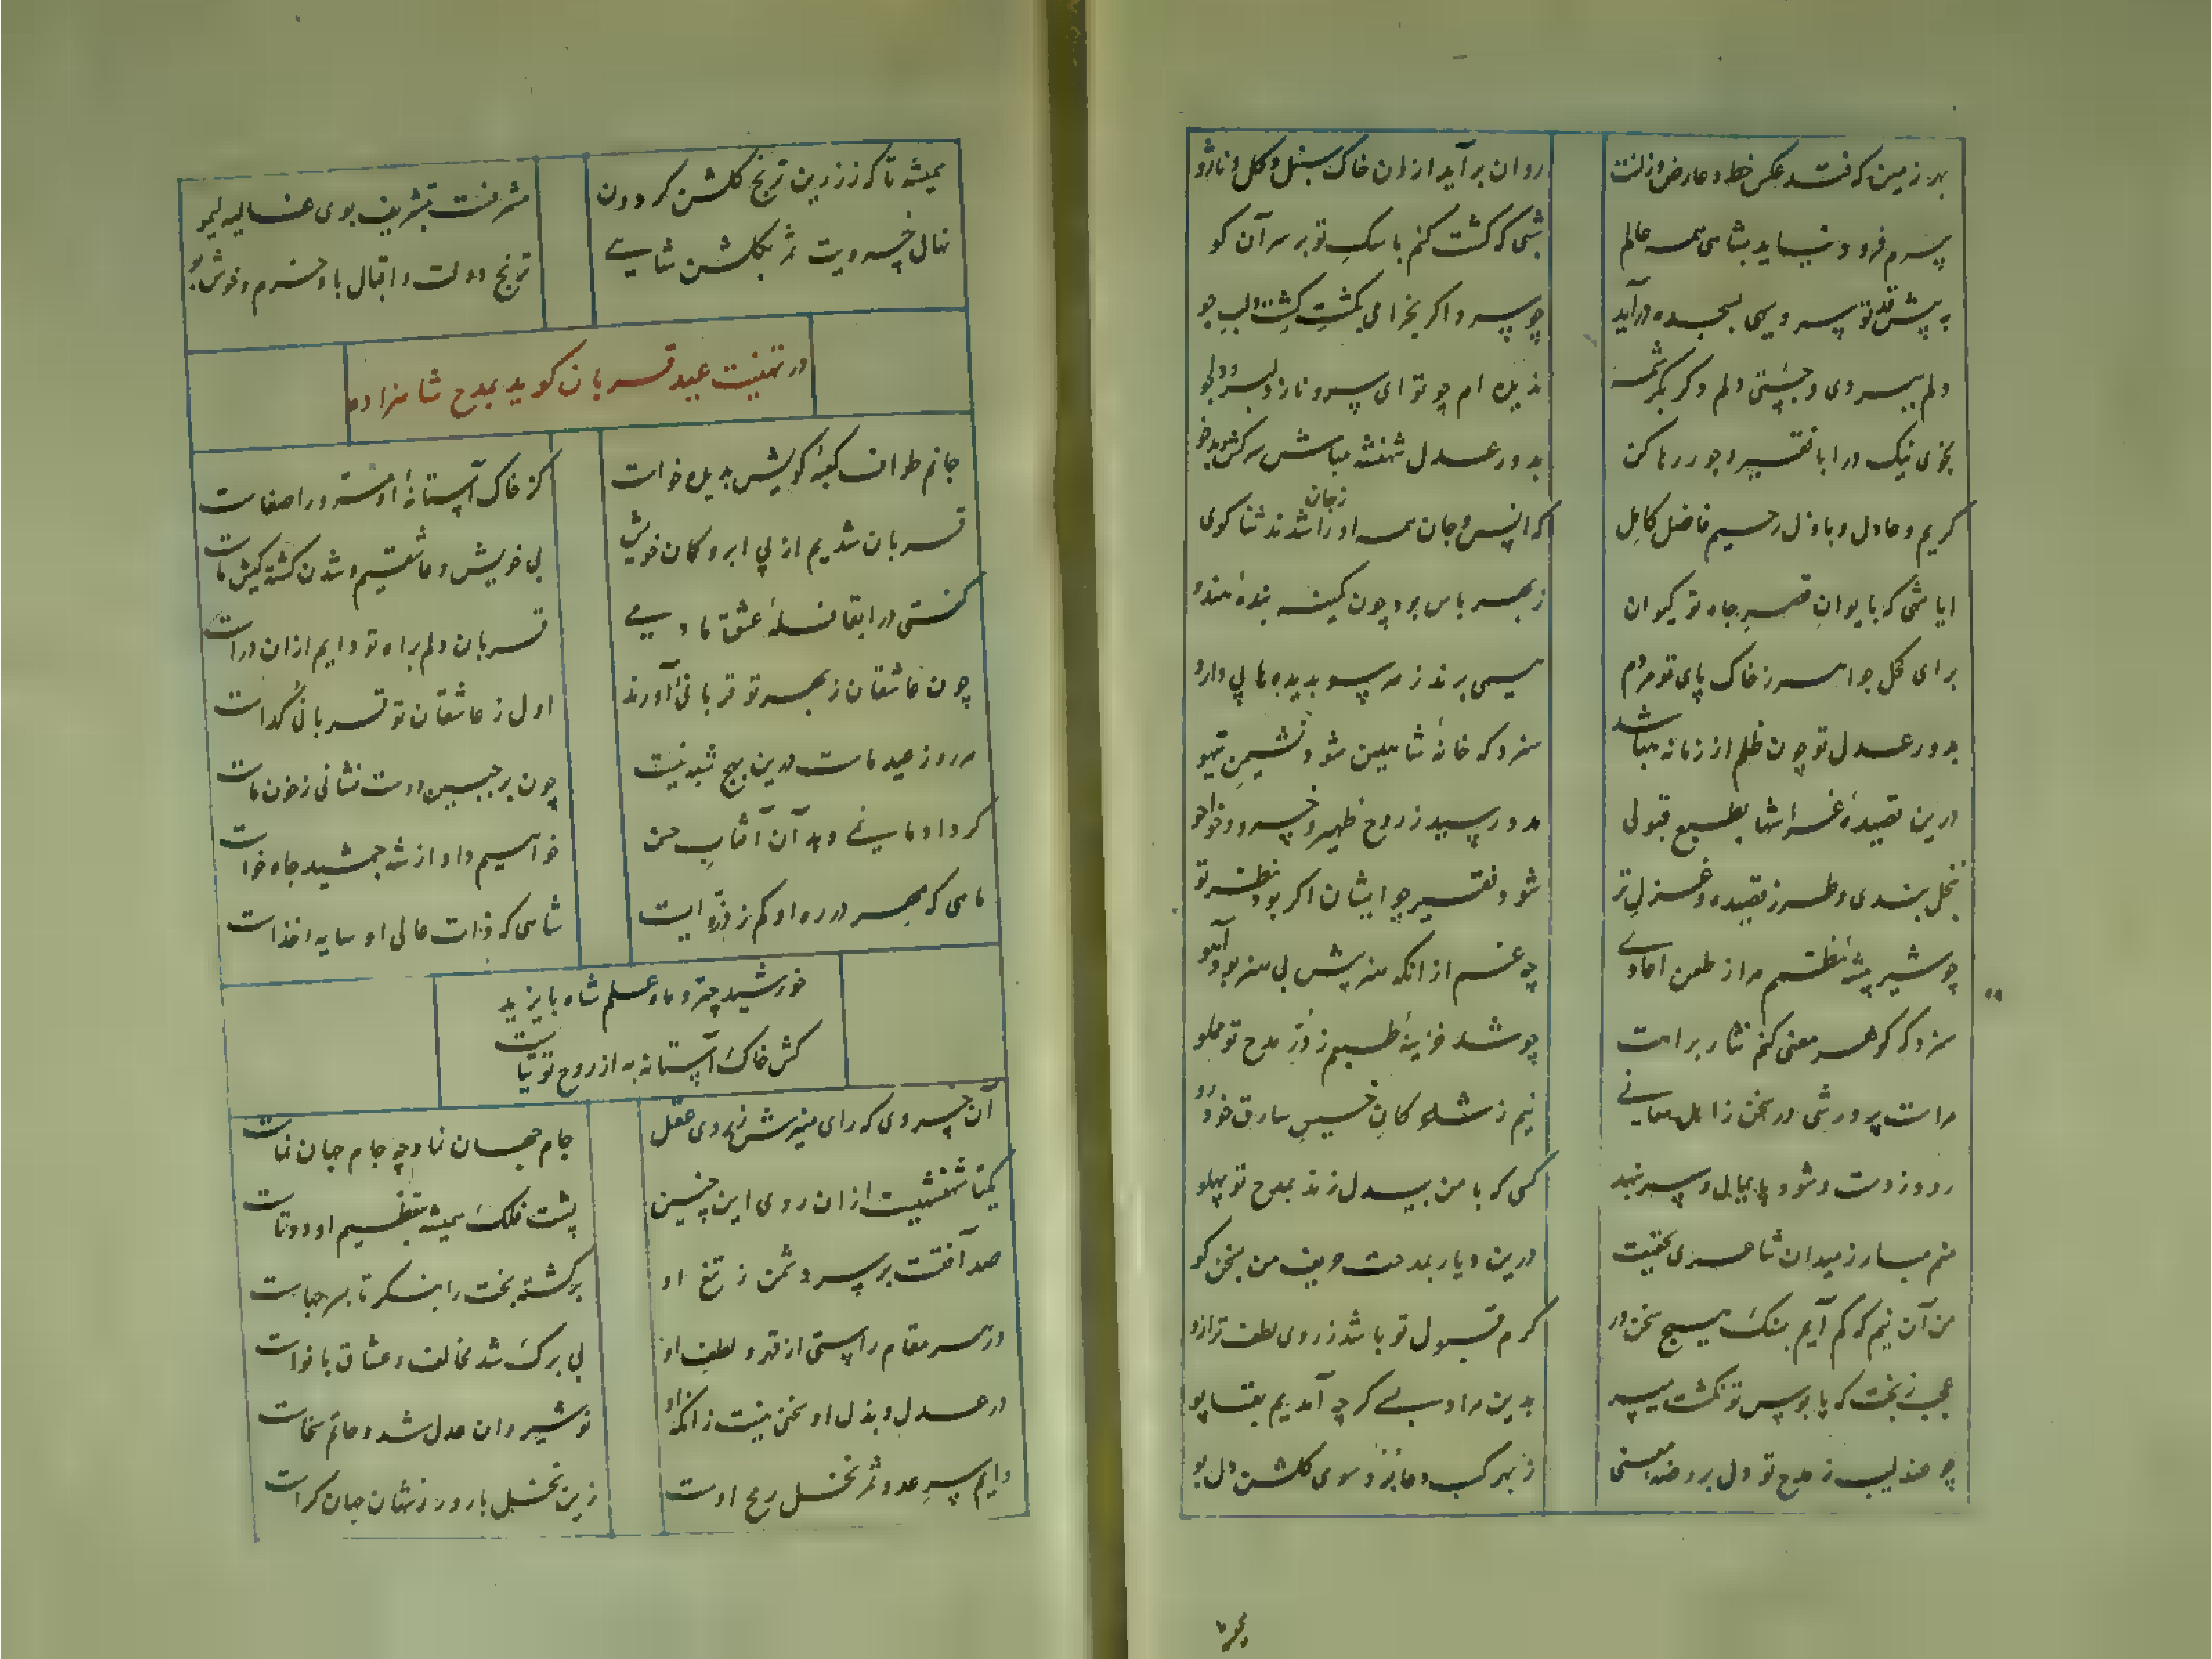 بهر زمین که فتد عکس خط و عارض و زلفت
روان برآید ازان خاک سنبل و گل و نازو
سرم فرود نیاید بشاهی همه عالم
شبی که گشت کنم با سگ تو بر سر آن کو
به پیش قد تو سرو سهی بسجده درآید
چو سرو اگر بخرامی بگشت کشت و لب جو
دلم ببردی و جستی دلم دگر بکرشمه
ندیده ام چو تو ای سرو ناز دلبر و دلجو
بخوی نیک درا با فقیر و جور رها کن
بدور عدل شهنشه مباش سرکش و بدخو
کریم و عادل و باذل رحیم فاضل کامل
که انس و جان همه او را ز جان شدند ثناگوی
ایا شهی که بایوان قصر جاه تو کیوان
ز بهر پاس بود چون کمینه بنده هندو
برای کحل جواهر ز خاک پای تو مردم
همی برند ز هر سو بدیده ها پی دارو
بدور عدل تو چون ظلم از زمانه مباشد
سزد که خانه شاهین شود نشیمن تیهو
درین قصیده غرا شها بطبع قبولی
مدد رسید ز روح ظهیر و خسرو و خواجو
بنخل بندی و طرز قصیده و غزل تر
شود فقیر چو ایشان اگر بود نظر تو
چو شیر بیشه نظمم مرا ز طعن اعادی
چه غم از آنکه هنر پیش بی هنر بود آهو
سزد که گوهر معنی کنم نثار براهت
چو شد خزینه طبعم ز در مدح تو مملو
مراست پرورشی در سخن ز اهل معانی
نیم ز شاعرکان خسیس سارق خودرو
رود ز دست و شود پایمال و سر بنهد
کسی که با من بیدل زند بمدح تو پهلو
منم مبارز میدان شاعری بحقیقت
درین دیار بمدحت حریف من سخن گو
من آن نیم که کم آیم بسنگ هیچ سخن ور
گرم قبول تو باشد ز روی لطف ترازو
عجب ز بخت که پابوس تو نگشت میسر
بدین مراد بسی گرچه آمدیم بتکاپو
چو عندلیب ز مدح تو دل بروضه معنی
ز بهر کسب دعا بُرد سوی گلشن دل بو
همیشه تا که ز زرین ترنج گلشن گردون
مشرفست بتشریف بوی غالیه لیمو
نهال خسرویت را بگلشن شاهی
ترنج دولت و اقبال باد خرم و خوش بو
در تهنیت عید قربان گوید بمدح شاهزاده
جانم طواف کعبه کویش بدیده خواست
کز خاک آستانه او مروه را صفاست
قربان شدیم از پی ابرو کمان خویش
بی خویش و عاشقیم و شدن کشته کیش ماست
گفتی درا بقافله عشق ما دمی
قربان دلم براه تو دایم ازان دراست
چون عاشقان ز بهر تو قربانی آورند
اول ز عاشقان تو قربانی گداست
هر روز عید ماست درین هیچ شبه نیست
چون بر جبین دوست نشانی ز خون ماست
گر داد ما نمی دهد آن آفتاب حسن
خواهیم داد از شه جمشید جاه خواست
ماهی که مهر در ره او کم ز ذره ایست
شاهی که ذات عالی او سایه خداست
خورشید چتر و ماه علم شاه بایزید
کش خاک آستانه به از روح توتیاست
آن خسروی که رای منیرش ز روی عقل
جام جهان نما و چه جام جهان نماست
یکتا شهنشهیست ازان روی این چنین
پشت فلک همیشه بتعظیم او دوتاست
صد آفتست بر سر دشمن ز تیغ او
برگشته بخت را بنگر تا بسر چهاست
در هر مقام راستی از قهر و لطف او
بی برگ شد مخالف و عشاق بانواست
در عدل و بذل او سخنی نیست زانکه او
نوشیروان عدل شد و حاتم سخاست
دایم سر عدو ثمر نخل رمح اوست
زین نخل بارور ز نشان جهان کراست